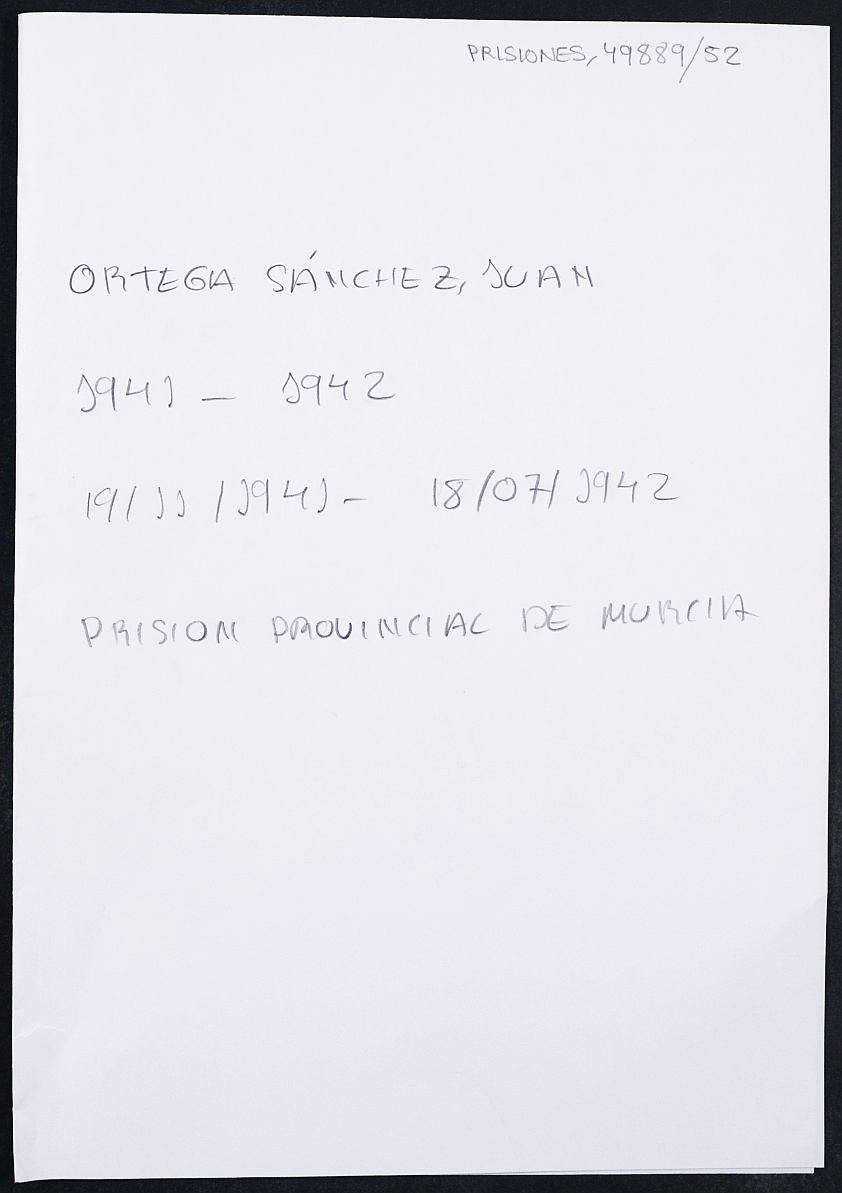 PRISIONES, 49889/52
ORTEGA SÁNCHEZ, JUAN
1941 - 1942
19/11/1941 - 18/07/1942
PRISION PROVINCIAL DE MURCIA